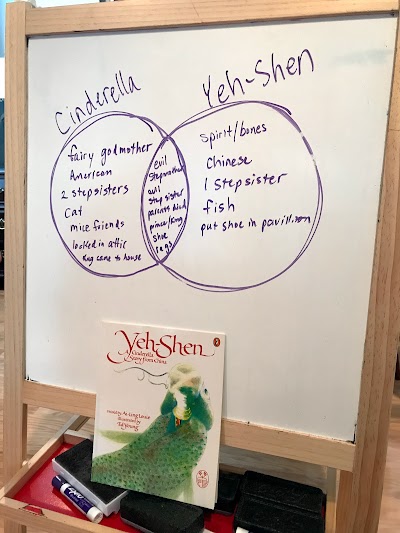 Cinderella
Yeh-Shen
fairy godmother
American
2 stepsisters
cat
mice friends
locked in attic
King came to house
evil
stepmother
evil
stepsister
parents died
prince/King
shoe
rags
spirit/bones
Chinese
1 stepsister
fish
put shoe in pavillion
Yeh-Shen
A Cinderella
Story from China
retold by Ai-Ling Louie
illustrated by
Ed Young
EXPO